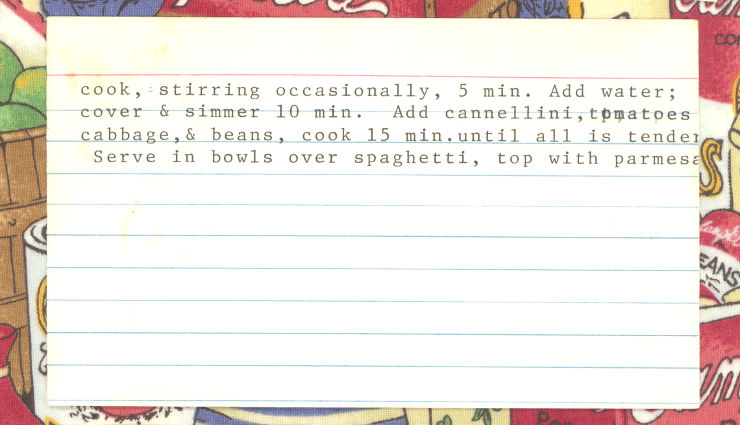 cook, stirring occasionally, 5 min. Add water;
cover & simmer 10 min.  Add cannellini, tomatoes
cabbage,& beans, cook 15 min.until all is tender
Serve in bowls over spaghetti, top with parmesa
EANS